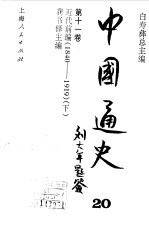 白寿彝总主编
中國通史
第十一卷
近代前编(1840——1919)(下)
龚书铎主编
刘大年题签
20
上海人民出版社